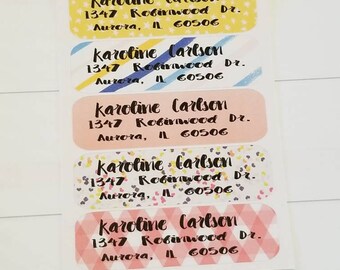 Karoline Carlson
1347 Robinwood Dr.
Aurora, IL 60506
Karoline Carlson
1347 Robinwood Dr.
Aurora, IL 60506
Karoline Carlson
1347 Robinwood Dr.
Aurora, IL 60506
Karoline Carlson
1347 Robinwood Dr.
Aurora, IL 60506
Karoline Carlson
1347 Robinwood Dr.
Aurora, IL 60506